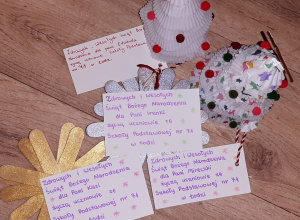 Zdrowych i Wesołych Świąt
Bożego Narodzenia
dla pana
życzą uczniowie Szkoły Podstawowej
nr 71 w Łodzi
Zdrowych i Wesołych
Świąt Bożego Narodzenia
dla Pani Irenki
życzą uczniowie ze
Szkoły Podstawowej nr 71
w Łodzi
Zdrowych i Wesołych
Świąt Bożego Narodzenia
dla Pani Kasi
życzą uczniowie ze
Szkoły Podstawowej
nr 71 w Łodzi
Zdrowych i Wesołych
Świąt Bożego Narodzenia
dla Pani
życzą uczniowie ze
Szkoły Podstawowej nr 71
w Łodzi